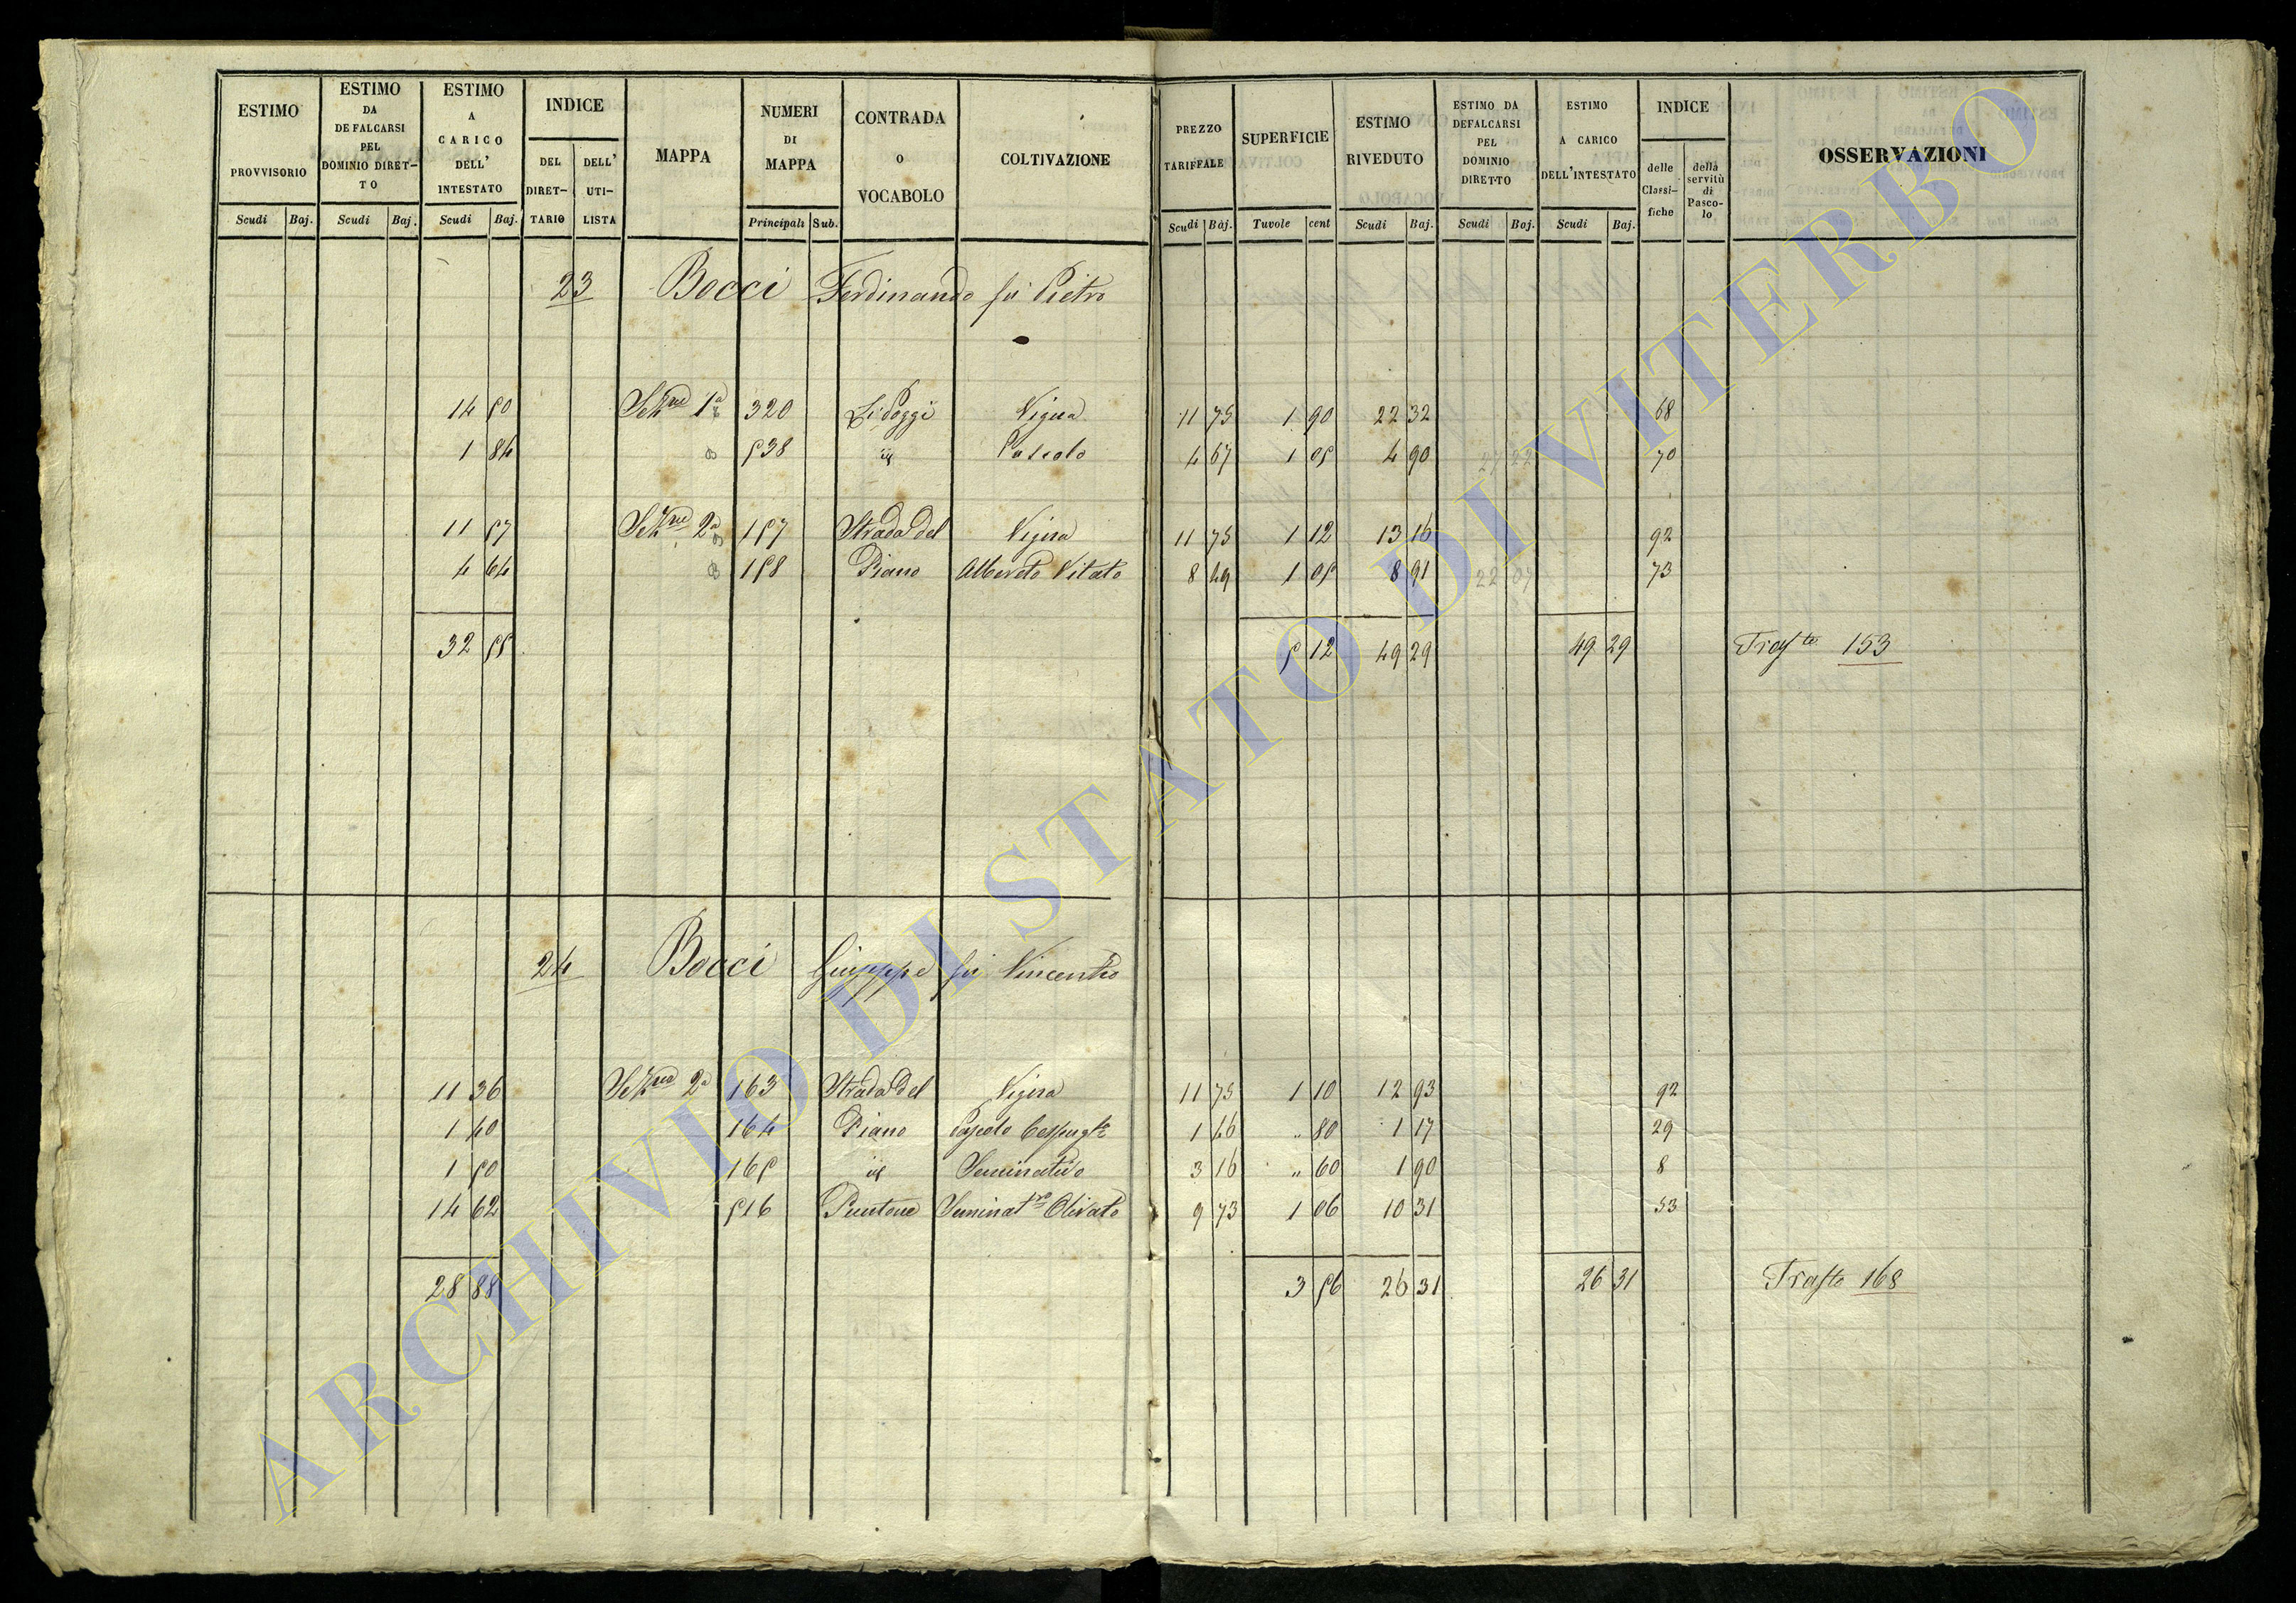 ESTIMO PROVVISORIO Scudi Baj.
ESTIMO DA DEFALCARSI PEL DOMINIO DIRETTO Scudi Baj.
ESTIMO A CARICO DELL' INTESTATO Scudi Baj.
INDICE DEL DIRETTARIO DELL' UTILISTA
MAPPA
NUMERI DI MAPPA Principali Sub.
CONTRADA O VOCABOLO
COLTIVAZIONE
PREZZO TARIFFALE Scudi Baj.
SUPERFICIE Tavole cent
ESTIMO RIVEDUTO Scudi Baj.
ESTIMO DA DEFALCARSI PEL DOMINIO DIRETTO Scudi Baj.
ESTIMO A CARICO DELL'INTESTATO Scudi Baj.
INDICE delle Classifiche della servitù di Pascolo
OSSERVAZIONI
23 Bocci Ferdinando fu Pietro
14 50 Sezne 1a 320 Li Poggi Vigna 11 75 1 90 22 32 68
1 84 538 id Pascolo 4 67 1 05 4 90 70
11 57 Sezne 2a 157 Strada del Vigna 11 75 1 12 13 16 92
4 64 158 Piano Alberato Vitato 8 49 1 05 8 91 73
32 55 5 12 49 29 49 29 Trasto 153
24 Bocci Giuseppe fu Vincenzo
11 36 Sezne 2a 163 Strada del Vigna 11 75 1 10 12 93 92
1 40 164 Piano Pascolo Cespugto 1 46 " 80 1 17 29
1 50 165 id Seminativo 3 16 " 60 1 90 8
14 62 516 Puntone Seminatvo Olivato 9 73 1 06 10 31 53
28 88 3 56 26 31 26 31 Trasto 168
ARCHIVIO DI STATO DI VITERBO